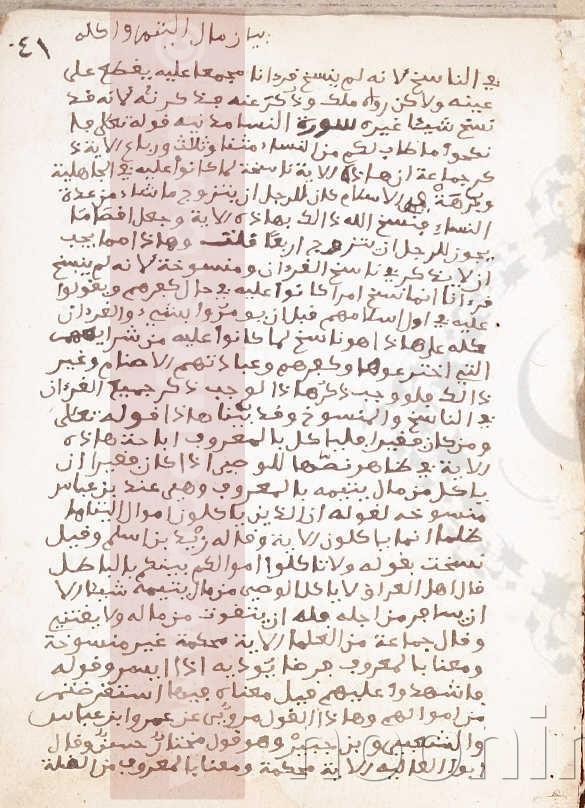 بيان مال اليتيم واكله
٤١
في الناسخ لانه لم ينسخ قرءانا مجمعا عليه يقطع على
عينه ولاكن رواه ملك وذكر عنه فذكرته لانه قد
نسخ شيئا غيره سورة النسا مدنية قوله تعلى فا
نكحوا ما طاب لكم من النساء مثنا وثلث ورباع الاية ذ
كر جماعة ان هاذه الاية ناسخة لما كانوا عليه في الجاهلية
وبرهة من الاسلام كان للرجل ان يتزوج ما شاء من عدة
النساء فنسخ الله ذالك بهاذه الاية وجعل اقصا ما
يجوز للرجل ان يتزوج اربعا قلت وهاذا مما يجب
ان لا يذكر في ناسخ القرءان ومنسوخه لانه لم ينسخ
قرءانا انما نسخ امرا كانوا عليه في حال كفرهم ويقولوا
عليه في اول اسلامهم قبل ان يومروا بشيء والقرءان
كله على هاذا هو ناسخ لما كانوا عليه من شرايعهم
التي اخترعوها وكفرهم وعبادتهم الاصنام وغير
ذالك فلو وجب ذكر هاذا لوجب ذكر جميع القرءان
في الناسخ والمنسوخ وقد بينا هاذا قوله تعلى
ومن كان فقيرا فلياكل بالمعروف اباحة هاذه
الاية في ظاهر نصها للوصي اذا كان فقيرا ان
ياكل من مال يتيمه بالمعروف وهي عند بن عباس
منسوخة لقوله ان الذين ياكلون اموال اليتاما
ظلما انما ياكلون الاية وقاله زيد بن اسلم وقيل
نسخت بقوله ولا تاكلوا اموالكم بينكم بالباطل
قال اهل العراق لا ياكل الوصي من مال يتيمه شيئا الا
ان سافر من اجله فله ان يتقوت من ماله ولا يقتني
وقال جماعة من العلما الاية محكمة غير منسوخة
ومعنا بالمعروف قرضا يوديه اذا ايسر وقوله
فاشهدوا عليهم قيل معناه فيما استقرضتم
من اموالهم وهاذا القول مروي عن عمر وابن عباس
والشعبي وبن جبير وهو قول مختار حسن وقال
ابوا العالية الاية محكمة ومعنا بالمعروف من الغلة